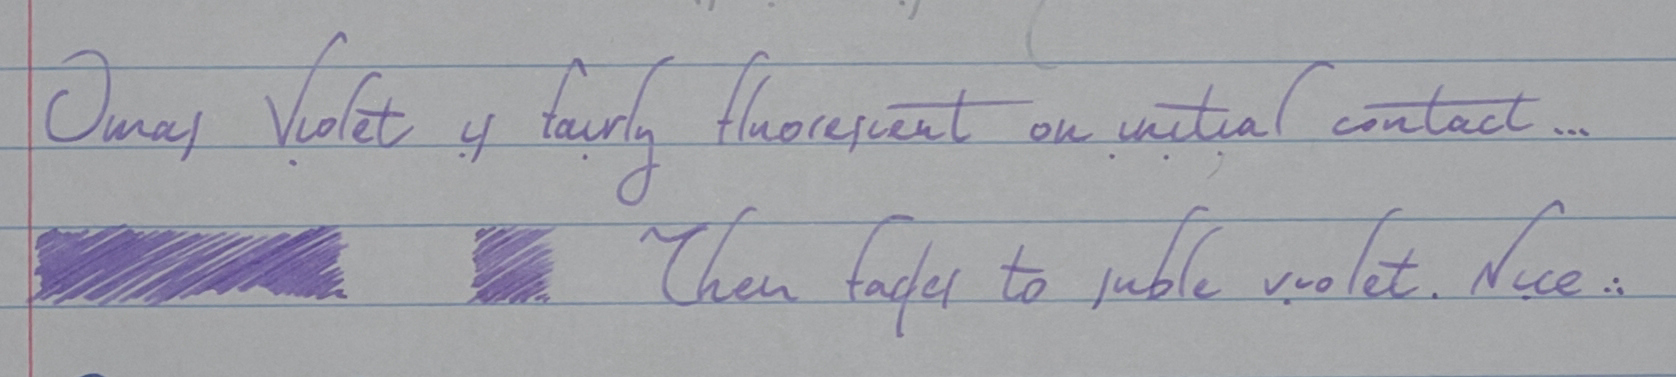 Omas Violet is fairly fluorescent on initial contact...
Then fades to suble violet. Nice :.